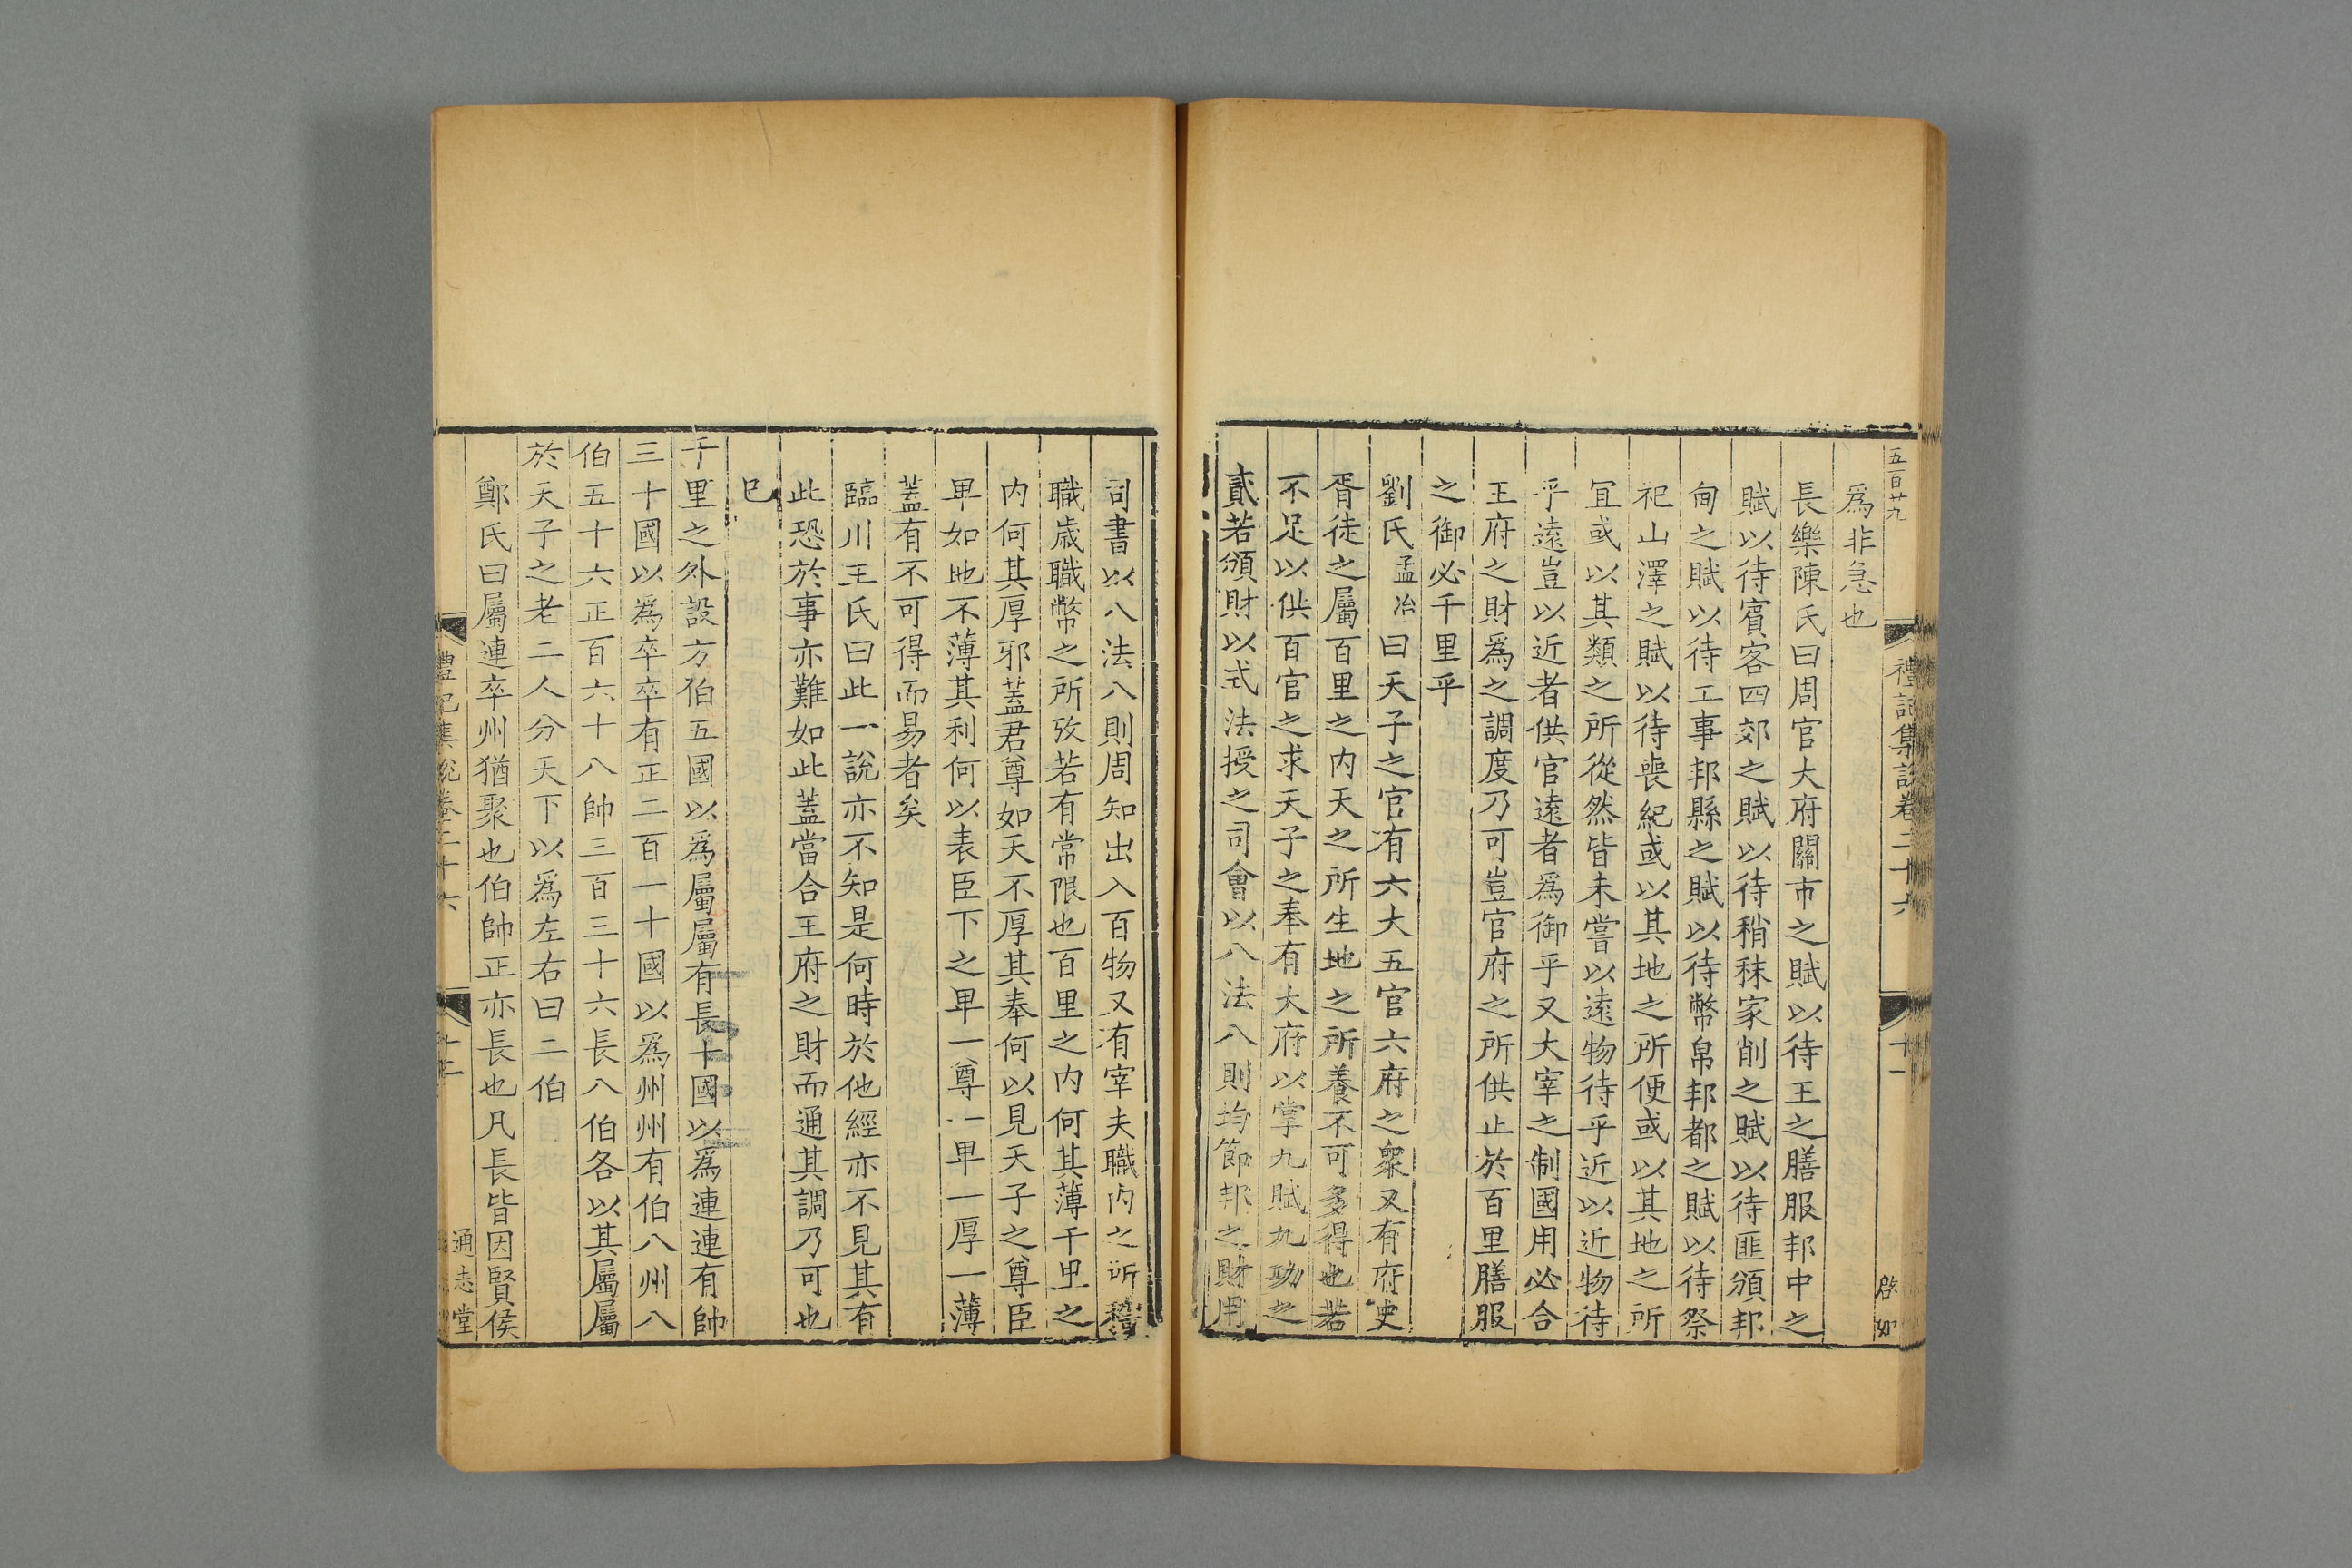 五百廿九
禮記集說卷二十六
十一
啓如
爲非急也
長樂陳氏曰周官大府關市之賦以待王之膳服邦中之
賦以待賓客四郊之賦以待稍秣家削之賦以待匪頒邦
甸之賦以待工事邦縣之賦以待幣帛邦都之賦以待祭
祀山澤之賦以待喪紀或以其地之所便或以其地之所
冝或以其類之所從然皆未嘗以遠物待乎近以近物待
乎遠豈以近者供官遠者爲御乎又大宰之制國用必合
王府之財爲之調度乃可豈官府之所供止於百里膳服
之御必千里乎
劉氏孟冶曰天子之官有六大五官六府之衆又有府史
胥徒之屬百里之内天之所生地之所養不可多得也若
不足以供百官之求天子之奉有大府以掌九賦九功之
貳若頒財以式法授之司會以八法八則均節邦之財用
司書以八法八則周知出入百物又有宰夫職内之所稽
職歲職幣之所攷若有常限也百里之内何其薄千里之
内何其厚邪蓋君尊如天不厚其奉何以見天子之尊臣
卑如地不薄其利何以表臣下之卑一尊一卑一厚一薄
蓋有不可得而易者矣
臨川王氏曰此一說亦不知是何時於他經亦不見其有
此恐於事亦難如此蓋當合王府之財而通其調乃可也
已
千里之外設方伯五國以爲屬屬有長十國以爲連連有帥
三十國以爲卒卒有正二百一十國以爲州州有伯八州八
伯五十六正百六十八帥三百三十六長八伯各以其屬屬
於天子之老二人分天下以爲左右曰二伯
鄭氏曰屬連卒州猶聚也伯帥正亦長也凡長皆因賢侯
禮記集說卷二十六
十二
通志堂